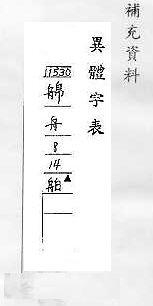 補充資料
異體字表
1530
舽
舟
8
14
船▲